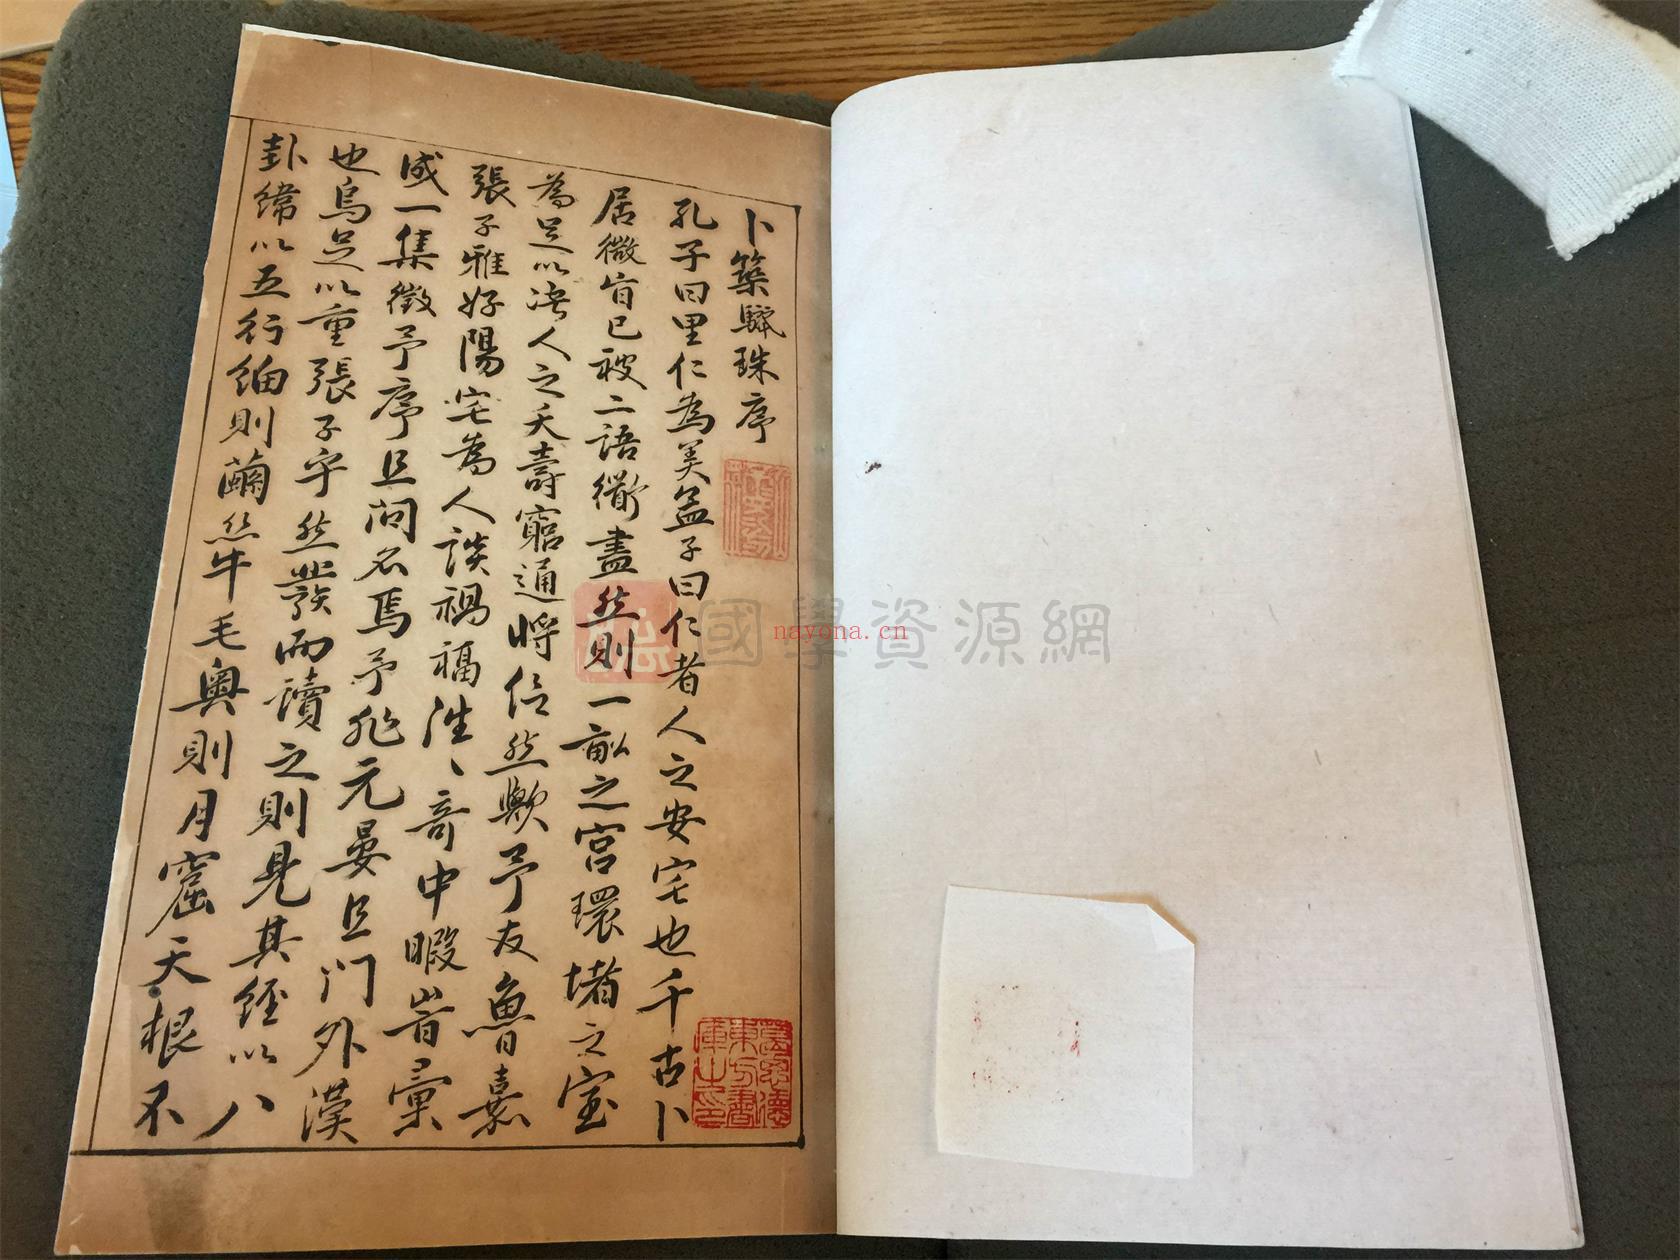 卜築驪珠序
孔子曰里仁為美孟子曰仁者人之安宅也千古卜
居微旨已被二語衛盡然則一畝之宮環堵之室
為足以决人之夭壽窮通將信然歟予友魯嘉
張子雅好陽宅為人談禍福津、竒中暇嵗彙
成一集徵予序且問名焉予非元晏且門外漢
也烏足以重張子乎然發而讀之則見其經以八
卦緯以五行細則繭丝牛毛奥則月窟天根不
葛思德
東方書
庫之印
國學資源網
nayona.cn